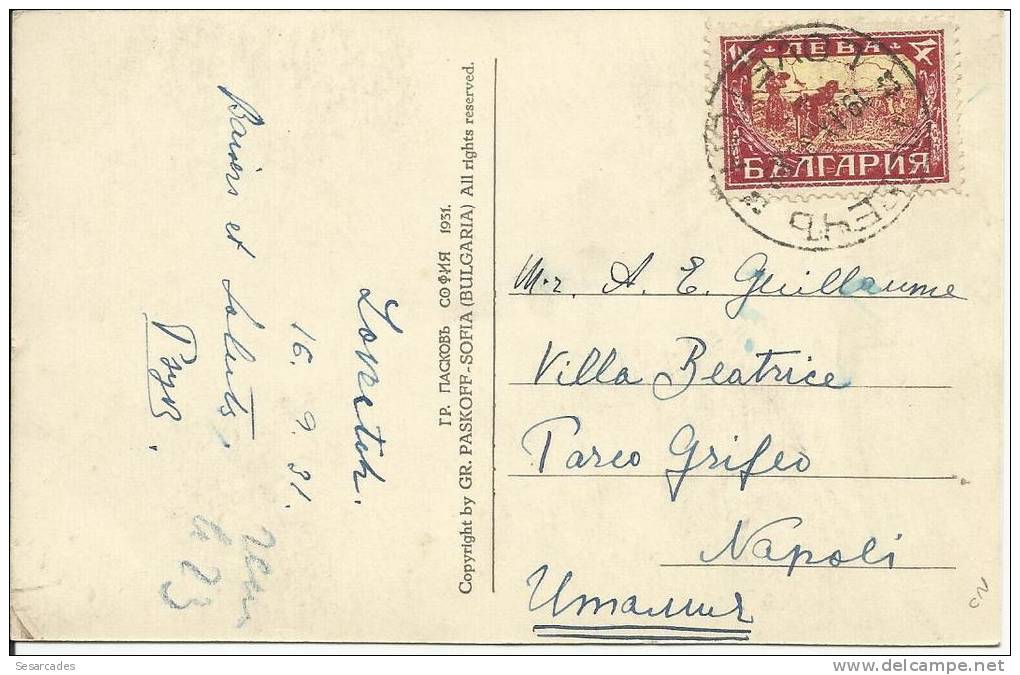 Baisers et Saluts.
Lovetch.
16. 9. 31.
ГР. ПАСКОВЪ СОФИЯ 1931.
Copyright by GR. PASKOFF-SOFIA (BULGARIA) All rights reserved.
ЛЕВА 4
БЪЛГАРИЯ
ЛОВЕЧЪ
LOV
M-r. A. E. Guillaume
Villa Beatrice
Parco Grifeo
Napoli
Италия
Sesarcades
www.delcampe.net